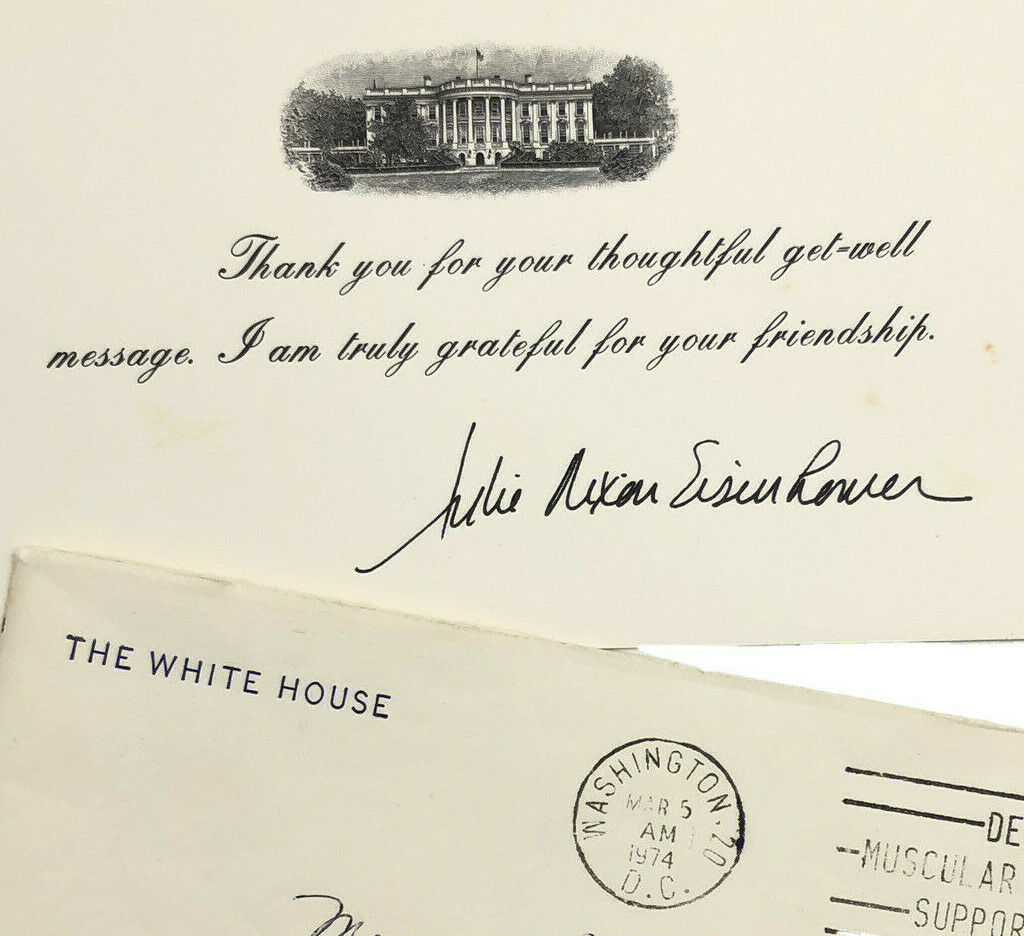 Thank you for your thoughtful get-well
message. I am truly grateful for your friendship.
Julie Nixon Eisenhower
THE WHITE HOUSE
WASHINGTON. 20
MAR 5
AM
1974
D.C.
DE
MUSCULAR
SUPPOR